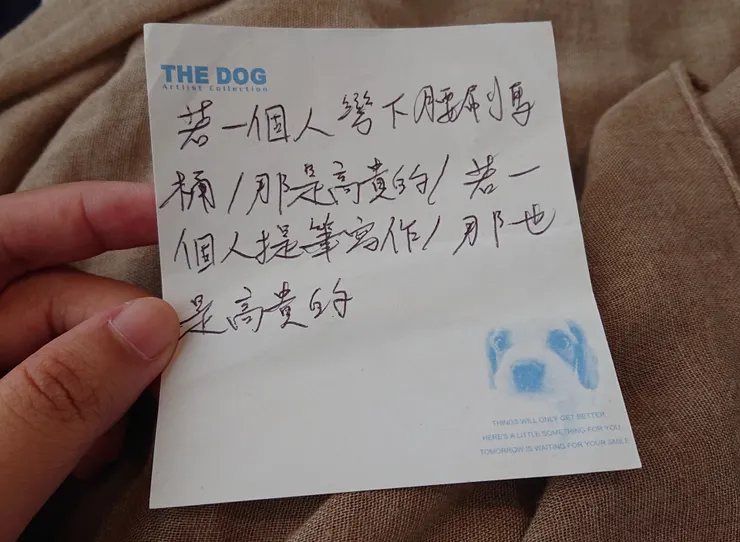 THE DOG
Artlist Collection
若一個人彎下腰刷馬
桶/那是高貴的/若一
個人提筆寫作/那也
是高貴的
THINGS WILL ONLY GET BETTER
HERE'S A LITTLE SOMETHING FOR YOU
TOMORROW IS WAITING FOR YOUR SMILE